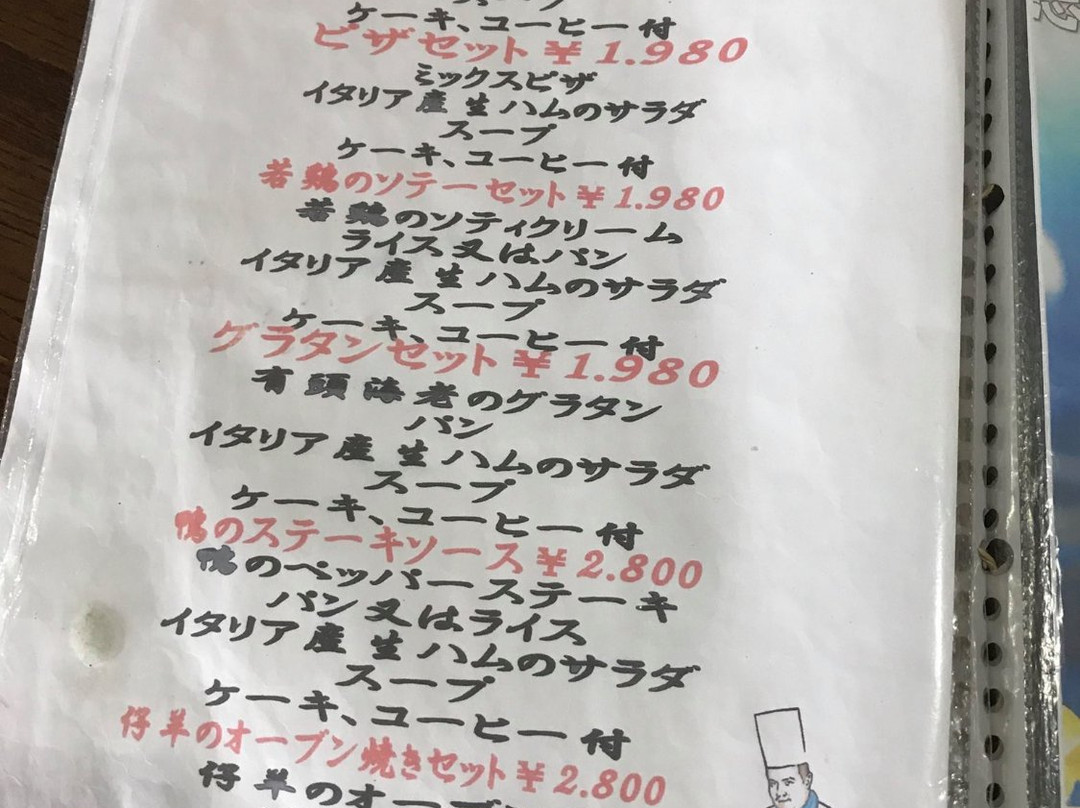 スープ
ケーキ、コーヒー付
ピザセット￥1.980
ミックスピザ
イタリア産生ハムのサラダ
スープ
ケーキ、コーヒー付
若鶏のソテーセット￥1.980
若鶏のソティクリーム
ライス又はパン
イタリア産生ハムのサラダ
スープ
ケーキ、コーヒー付
グラタンセット￥1.980
有頭海老のグラタン
パン
イタリア産生ハムのサラダ
スープ
ケーキ、コーヒー付
鴨のステーキソース￥2.800
鴨のペッパーステーキ
パン又はライス
イタリア産生ハムのサラダ
スープ
ケーキ、コーヒー付
仔羊のオーブン焼きセット￥2.800
仔羊のオーブ